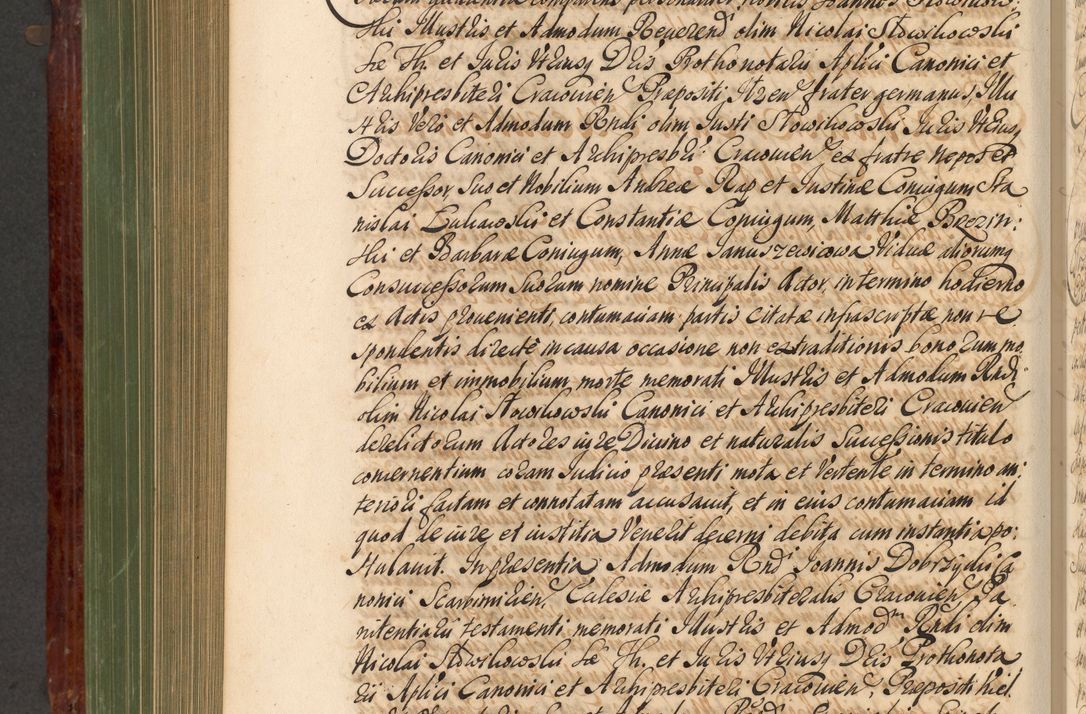 ski Illustris et Admodum Reverend olim Nicolai Słowikowski
Sae Th. et Juris Utriusq Dris Prothonotarii Aplici Canonici et
Archipresbiteri Cracovien Praepositi frater germanus, Illu
stris vero et Admodum Rndi olim Justi Słowikowski Juris Utriusq
Doctoris Canonici et Archipresbri Cracovien ex fratre Nepos et
Successor, Suo et Nobilium Andreæ Rap et Justinæ Coniugum, Sta
nislai et Constantiæ Coniugum, Matthiæ Brezin:
ski et Barbaræ Coniugum, Annæ Januszewicowa Viduæ aliorumq
Consuccessorum suorum nomine Principalis Actor, in termino hodierno
ex Actis provenienti, contumaciam partis Citatæ infrascriptæ non re
spondentis directe in causa occasione non extraditionis bonorum mo
bilium et immobilium morte memorati Illustris et Admodum Rndi
olim Nicolai Słowikowski Canonici et Archipresbiteri Cracovien
derelictorum Actores iure Divino et naturalis Successionis titulo
concernentium coram Judicio præsenti mota et vertente in termino an:
teriori factam et connotatam accusavit, et in eius contumaciam id
quod de iure et iustitia venerit decerni debita cum instantia po:
stulavit. In præsentia Admodum Rnd Joannis Dobrzydii Ca
nonici Scarbimirien, Ecclesiæ Archipresbiteralis Cracovien Pæ
nitentiarii testamenti memorati Illustris et Admodm Rndi olim
Nicolai Słowikowski Sæ Th. et Juris Utriusq Dris Prothonota
rii Aplici Canonici et Archipresbiteri Cracovien, Præpositi Kiel.